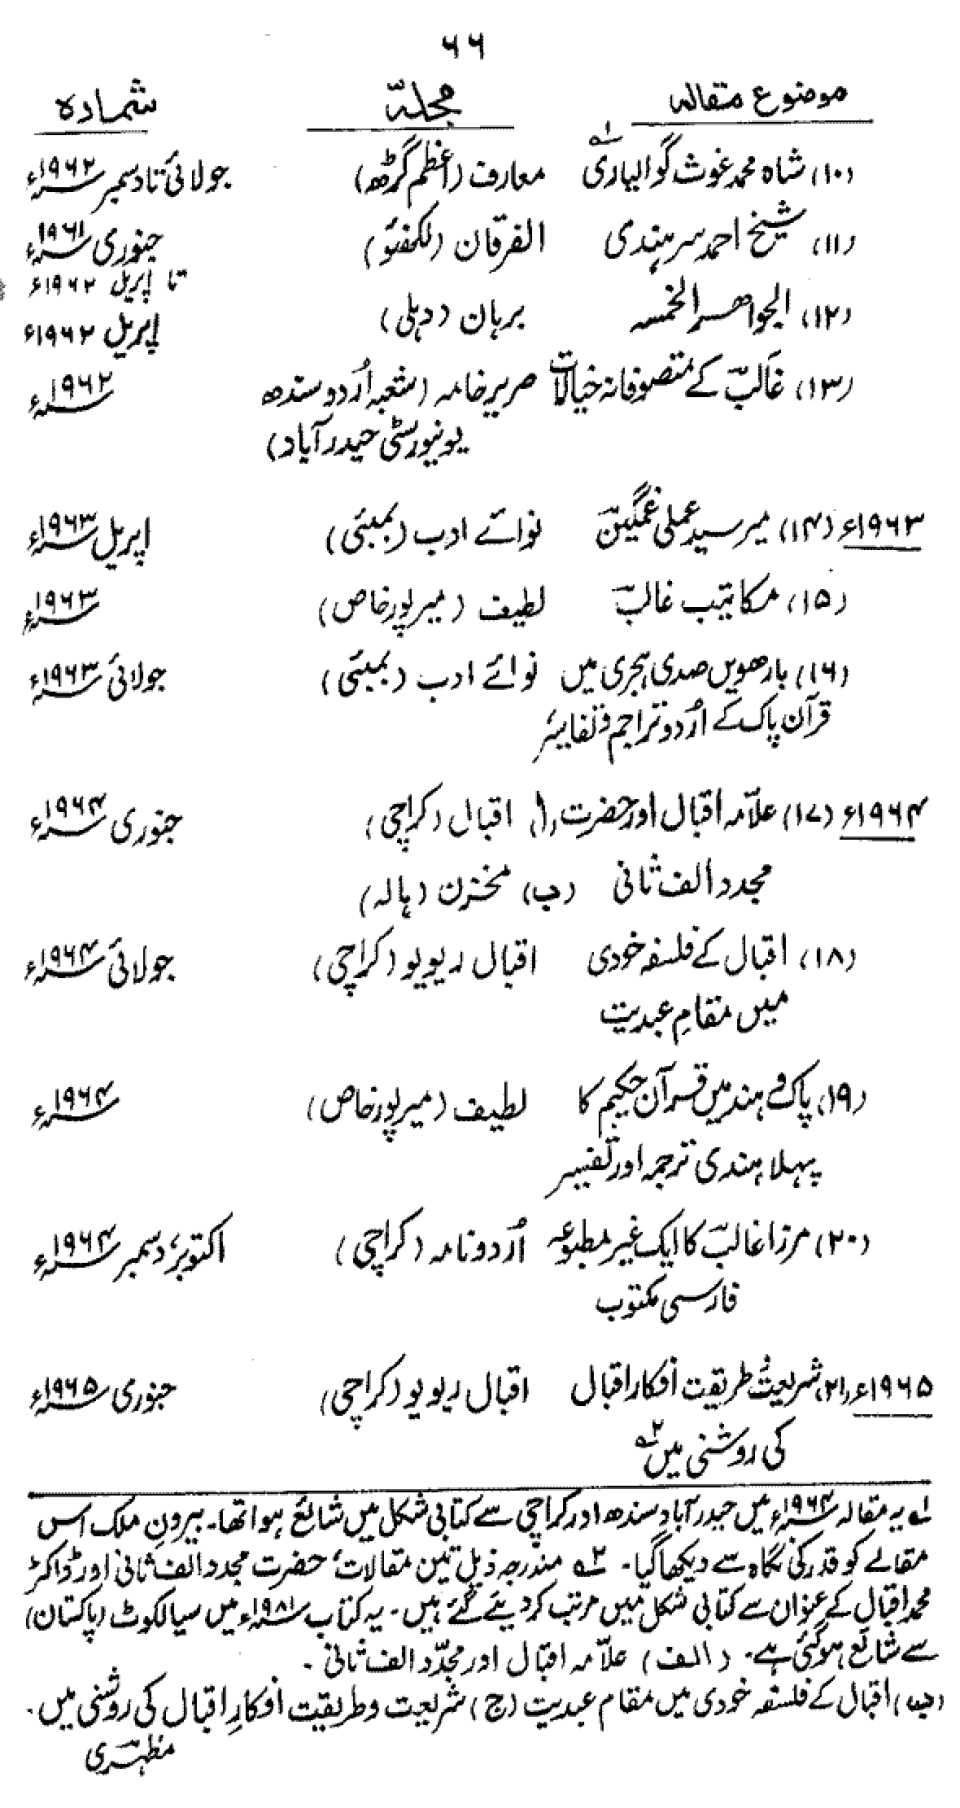 ۶۶
موضوع مقالہ مجلہ شمارہ
(۱۰) شاہ محمد غوث گوالیاری؂۱ معارف (اعظم گڑھ) جولائی تا دسمبر ۱۹۶۲ء
(۱۱) شیخ احمد سرہندی الفرقان (لکھنؤ) جنوری ۱۹۶۱ء
تا اپریل ۱۹۶۲ء
(۱۲) الجواہر الخمسہ برہان (دہلی) اپریل ۱۹۶۲ء
(۱۳) غالبؔ کے متصوفانہ خیالات صریر خامہ (شعبہ اُردو سندھ ۱۹۶۲ء
یونیورسٹی حیدرآباد)
۱۹۶۳ء (۱۴) میر سید علی غمگینؔ نوائے ادب (بمبئی) اپریل ۱۹۶۳ء
(۱۵) مکاتیب غالبؔ لطیف (میرپورخاص) ۱۹۶۳ء
(۱۶) بارھویں صدی ہجری میں نوائے ادب (بمبئی) جولائی ۱۹۶۳ء
قرآن پاک کے اُردو تراجم و تفاسیر
۱۹۶۴ء (۱۷) علامہ اقبال اور حضرت (ا) اقبال (کراچی) جنوری ۱۹۶۴ء
مجدد الف ثانی (ب) مخزن (ہالہ)
(۱۸) اقبال کے فلسفہ خودی اقبال ریویو (کراچی) جولائی ۱۹۶۴ء
میں مقامِ عبدیت
(۱۹) پاک و ہند میں قرآن حکیم کا لطیف (میرپورخاص) ۱۹۶۴ء
پہلا ہندی ترجمہ اور تفسیر
(۲۰) مرزا غالبؔ کا ایک غیر مطبوعہ اُردو نامہ (کراچی) اکتوبر، دسمبر ۱۹۶۴ء
فارسی مکتوب
۱۹۶۵ء (۲۱) شریعت و طریقت افکار اقبال اقبال ریویو (کراچی) جنوری ۱۹۶۵ء
کی روشنی میں؂۲
؂۱ یہ مقالہ ۱۹۶۴ء میں حیدرآباد سندھ اور کراچی سے کتابی شکل میں شائع ہوا تھا۔ بیرونِ ملک اس
مقالے کو قدر کی نگاہ سے دیکھا گیا۔ ؂۲ مندرجہ ذیل تین مقالات، حضرت مجدد الف ثانی اور ڈاکٹر
محمد اقبال کے عنوان سے کتابی شکل میں مرتب کر دیئے گئے ہیں۔ یہ کتاب ۱۹۸۱ء میں سیالکوٹ (پاکستان)
سے شائع ہوگئی ہے۔ (الف) علامہ اقبال اور مجدّد الف ثانی۔
(ب) اقبال کے فلسفہ خودی میں مقام عبدیت (ج) شریعت و طریقت افکارِ اقبال کی روشنی میں۔
مظہری